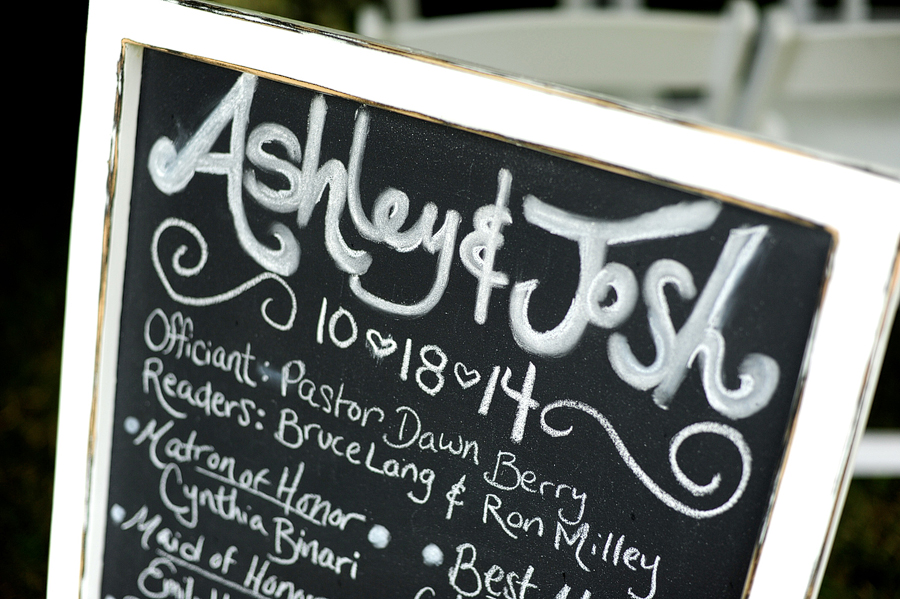 Ashley & Josh
10 ♡ 18 ♡ 14
Officiant: Pastor Dawn Berry
Readers: Bruce Lang & Ron Milley
• Matron of Honor •
Cynthia Binari
• Maid of Honor
• Best